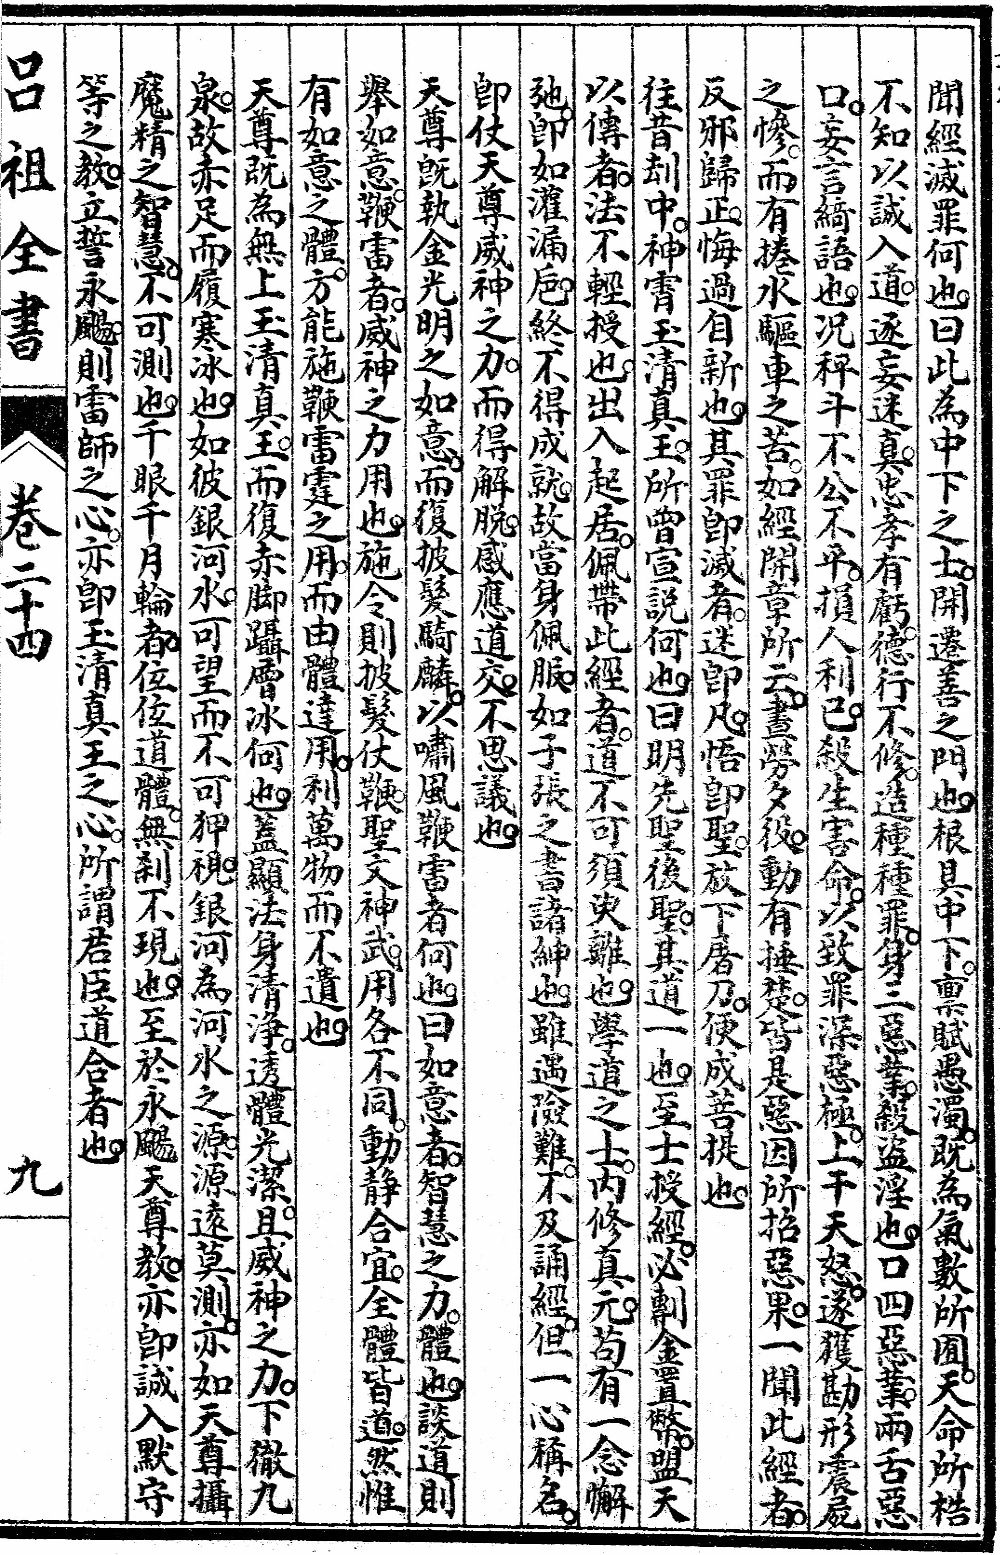 聞經滅罪何也曰此為中下之士開遷善之門也根具中下稟賦愚濁既為氣數所囿天命所梏
不知以誠入道逐妄迷真忠孝有虧德行不修造種種罪身三惡業殺盜淫也口四惡業兩舌惡
口妄言綺語也况秤斗不公不平損人利己殺生害命以致罪深惡極上干天怒遂獲勘形震屍
之慘而有捲水驅車之苦如經開章所云晝勞夕役動有捶楚皆是惡因所招惡果一聞此經者
反邪歸正悔過自新也其罪卽滅者迷卽凡悟卽聖放下屠刀便成菩提也
往昔刦中神霄玉清真王所曾宣説何也曰明先聖後聖其道一也至士授經必剸金置幣盟天
以傳者法不輕授也出入起居佩帶此經者道不可須臾離也學道之士内修真元苟有一念懈
弛卽如灌漏巵終不得成就故當身佩服如子張之書諸紳也雖遇險難不及誦經但一心稱名
卽仗天尊威神之力而得解脱感應道交不思議也
天尊既執金光明之如意而復披髮騎麟以嘯風鞭雷者何也曰如意者智慧之力體也談道則
舉如意鞭雷者威神之力用也施令則披髮仗鞭聖文神武用各不同動静合宜全體皆道然惟
有如意之體方能施鞭雷霆之用而由體達用利萬物而不遺也
天尊既為無上玉清真王而復赤脚躡層冰何也蓋顯法身清净透體光潔且威神之力下徹九
泉故赤足而履寒冰也如彼銀河水可望而不可狎視銀河為河水之源源遠莫測亦如天尊攝
魔精之智慧不可測也千眼千月輪者位位道體無刹不現也至於永颺天尊教亦卽誠入默守
等之教立誓永颺則雷師之心亦卽玉清真王之心所謂君臣道合者也
呂祖全書 卷二十四 九